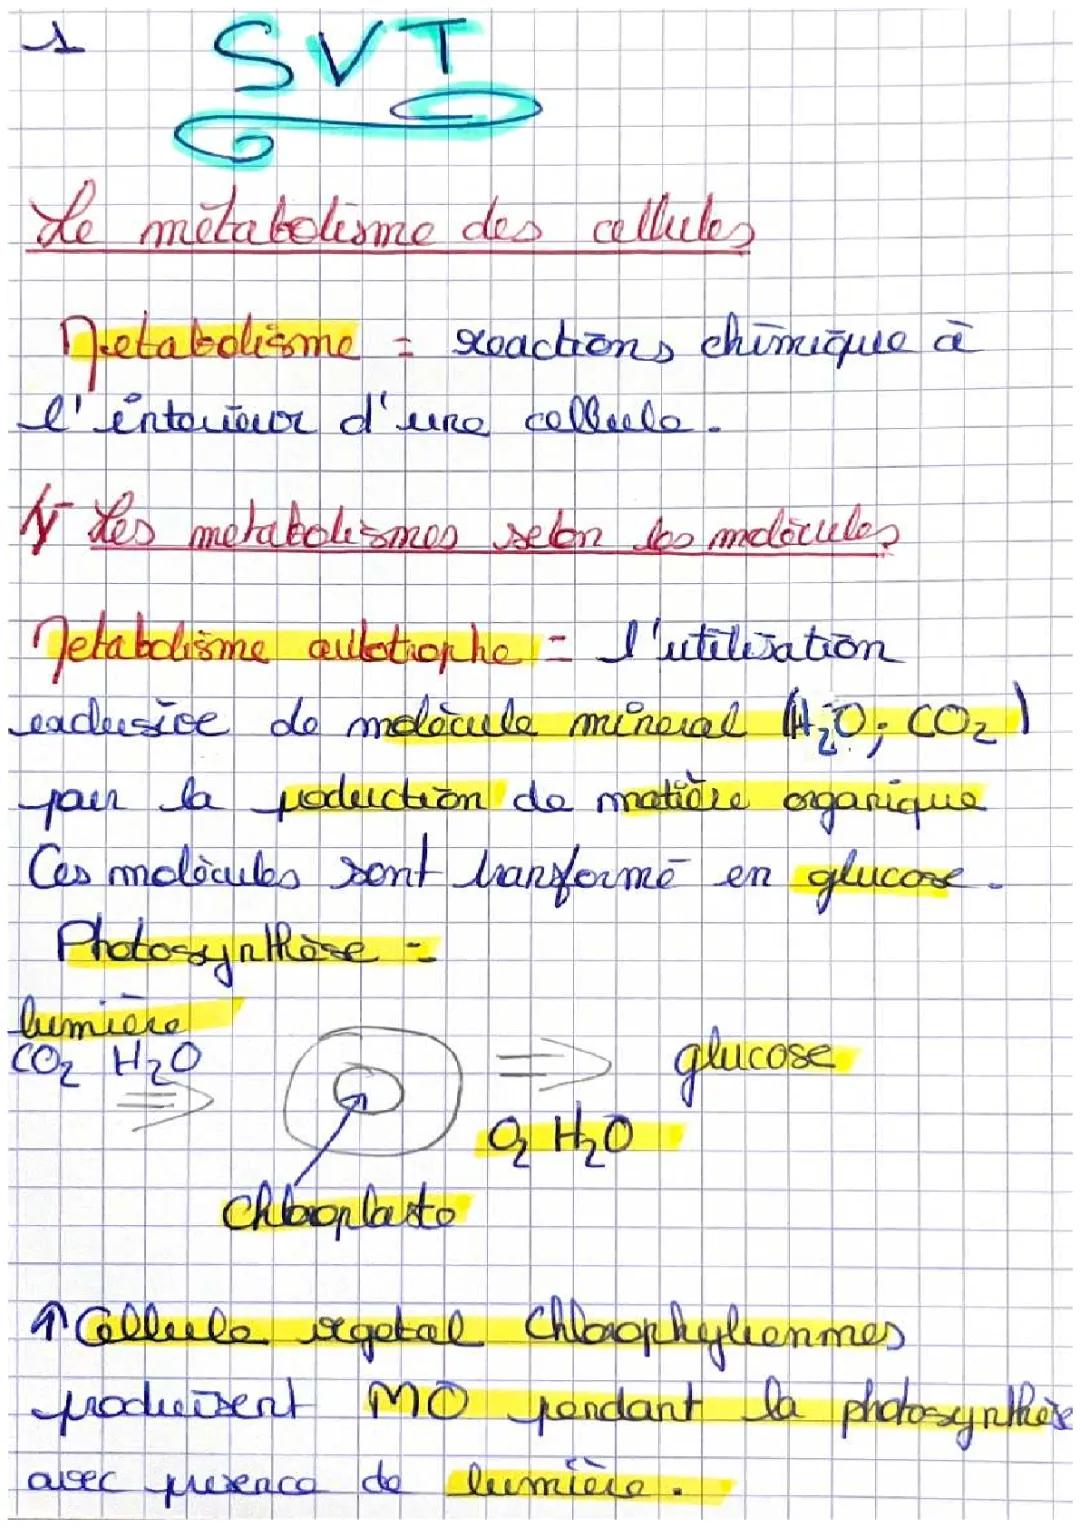 1
SVT
Le métabolisme des cellules
Metabolisme = reactions chimique à
l'intérieur d'une cellule.
1/ Les metabolismes selon les molécules
Metabolisme autotrophe = l'utilisation
exclusive de molécule mineral (H₂O; CO₂)
par la production de matière organique
Ces molécules sont transformé en glucose.
Photosynthèse =
lumière
CO₂ H₂O
glucose
O₂ H₂O
chloroplaste
↑ Cellule vegetal Chlorophyliennmes
produisent MO pendant la photosynthèse
avec presence de lumière.